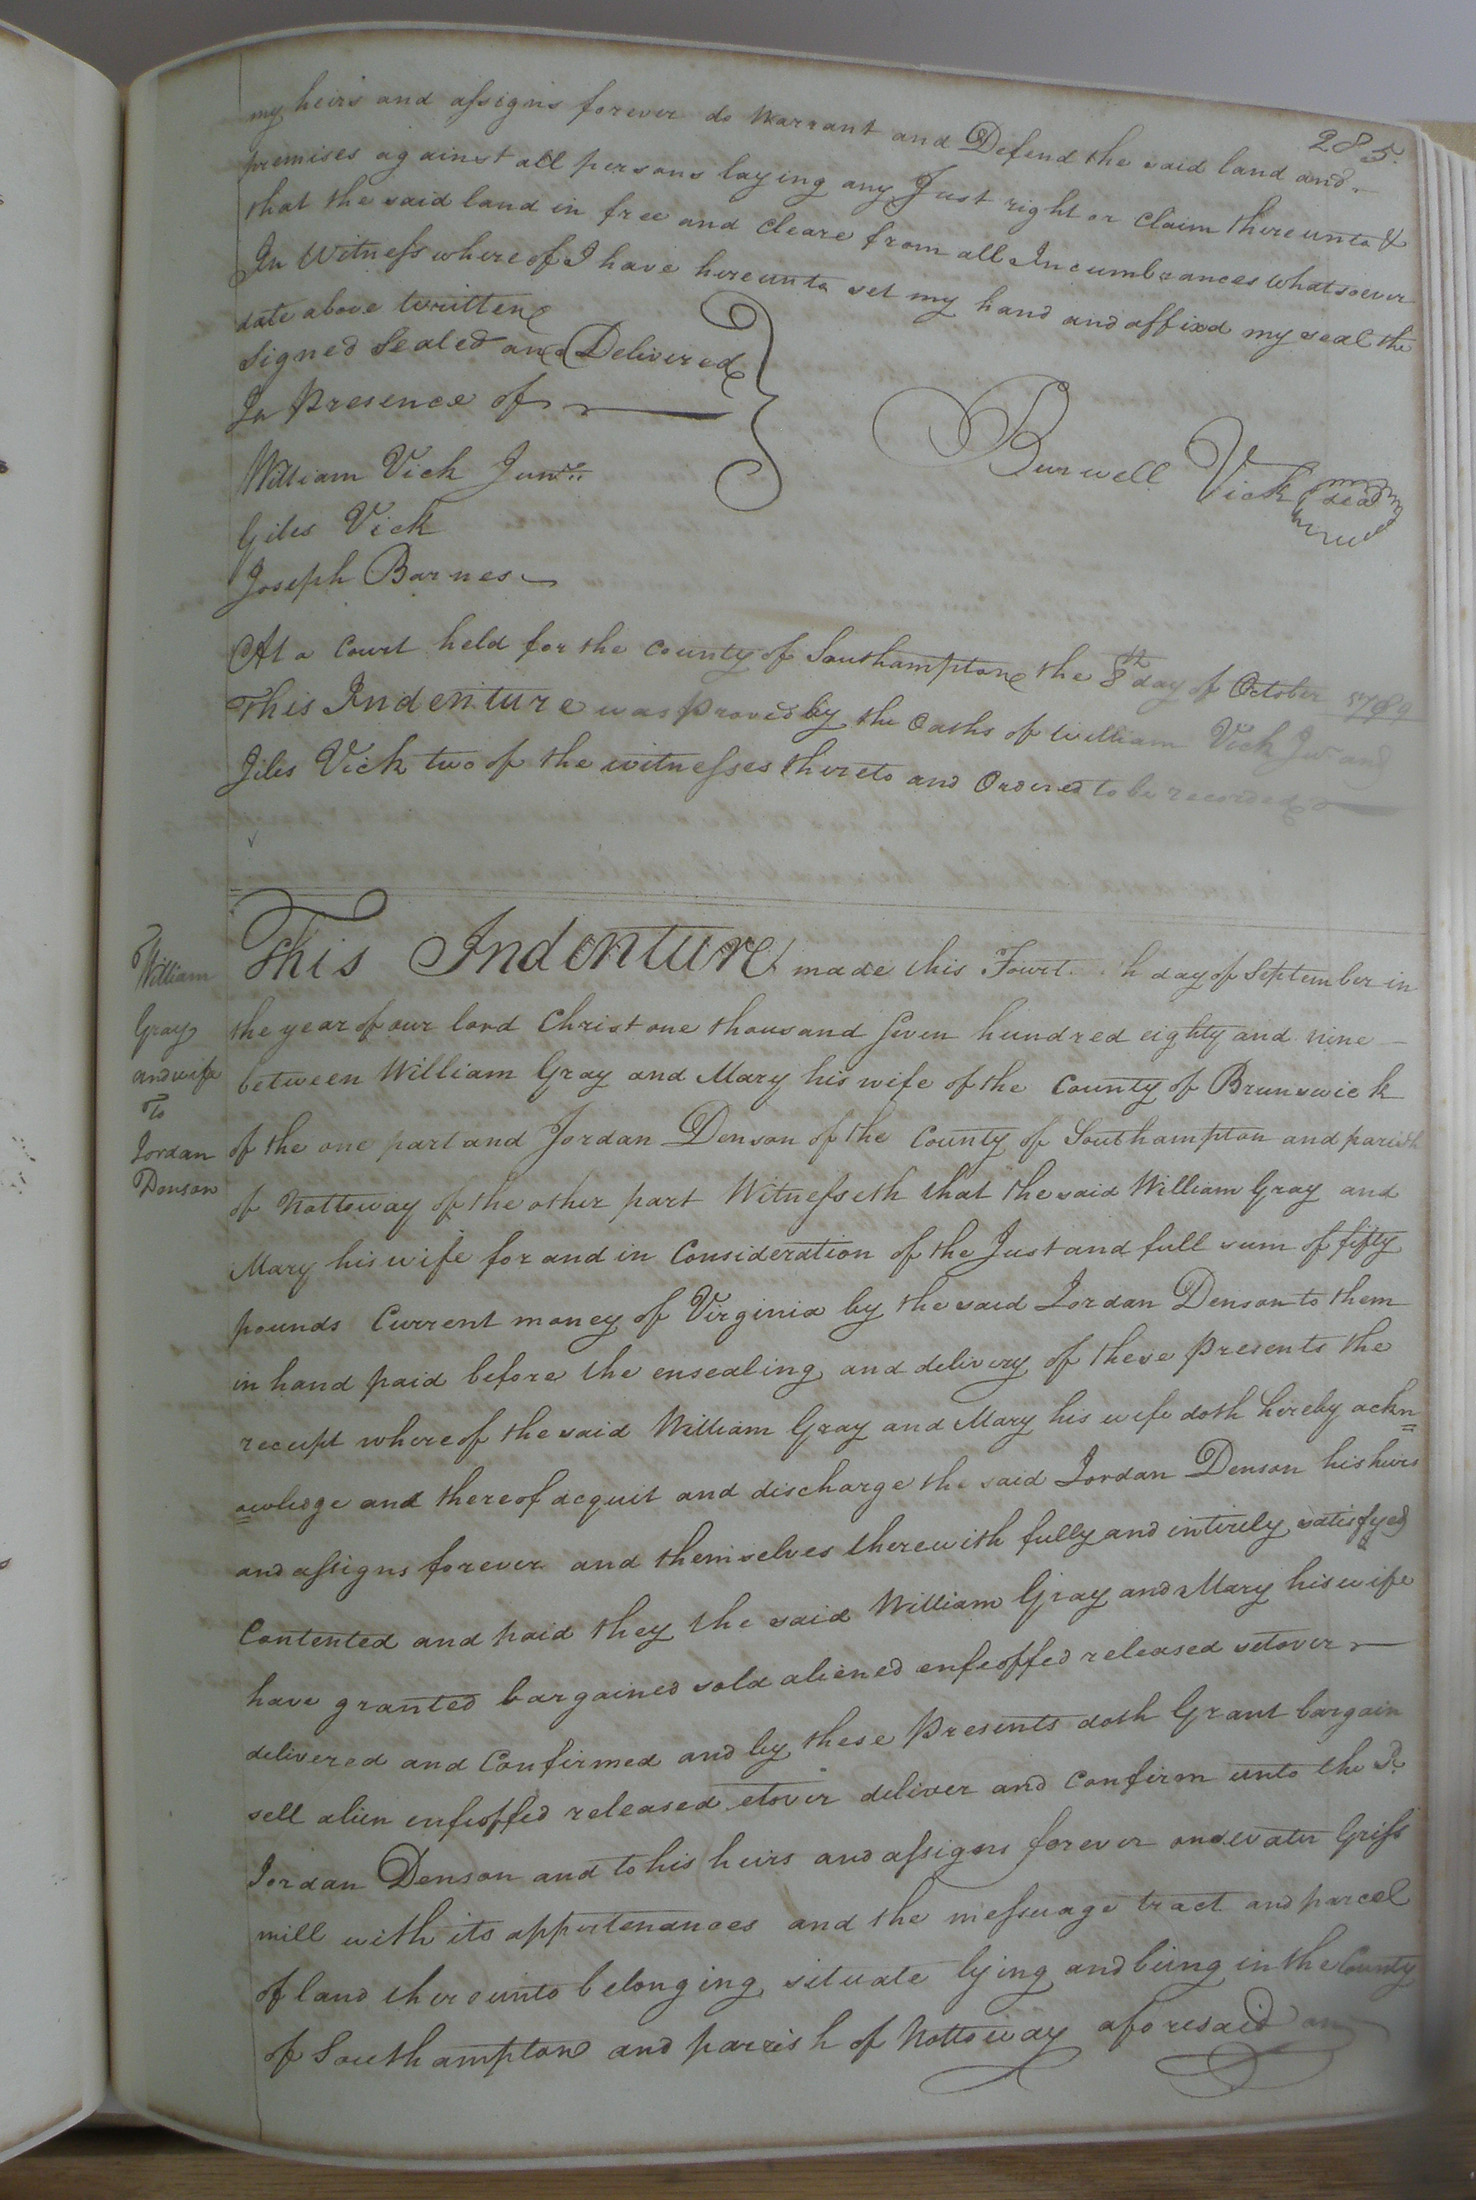 285.
my heirs and assigns forever do Warrant and Defend the said land and
premises against all persons laying any Just right or Claim thereunto &
that the said land in free and Cleare from all Incumbrances whatsoever
In Witness whereof I have hereunto set my hand and affixd my seal the
date above written
Signed Sealed and Delivered
In Presence of
William Vick Junr.
Giles Vick
Joseph Barnes
Burwell Vick seal
At a Court held for the County of Southampton the 8th day of October 1789
This Indenture was Proved by the Oaths of William Vick Jr and
Jiles Vick two of the witnesses thereto and Ordered to be recorded
William
Gray
and wife
To
Jordan
Denson
This Indenture made this Fourt h day of September in
the year of our lord Christ one thousand Seven hundred eighty and nine
between William Gray and Mary his wife of the County of Brunswick
of the one part and Jordan Denson of the County of Southampton and parish
of Nottoway of the other part Witnesseth that the said William Gray and
Mary his wife for and in Consideration of the Just and full sum of fifty
pounds Current money of Virginia by the said Jordan Denson to them
in hand paid before the ensealing and delivery of these Presents the
receipt whereof the said William Gray and Mary his wife doth hereby ackn=
=owledge and thereof acquit and discharge the said Jordan Denson his heirs
and assigns forever and themselves therewith fully and intirely satisfyed
Contented and paid they the said William Gray and Mary his wife
have granted bargained sold aliened enfeoffed released setover
delivered and Confirmed and by these Presents doth Grant bargain
sell alien enfeoffed released etover deliver and Confirm unto the Sd.
Jordan Denson and to his heirs and assigns forever one water Griss
mill with its appertenances and the messuage tract and parcel
of land thereunto belonging situate lying and being in the County
of Southampton and parrish of Nottoway aforesaid an